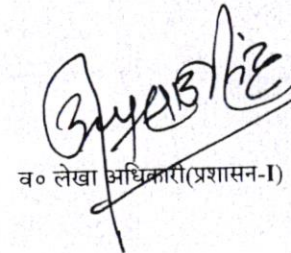 व० लेखा अधिकारी(प्रशासन-I)